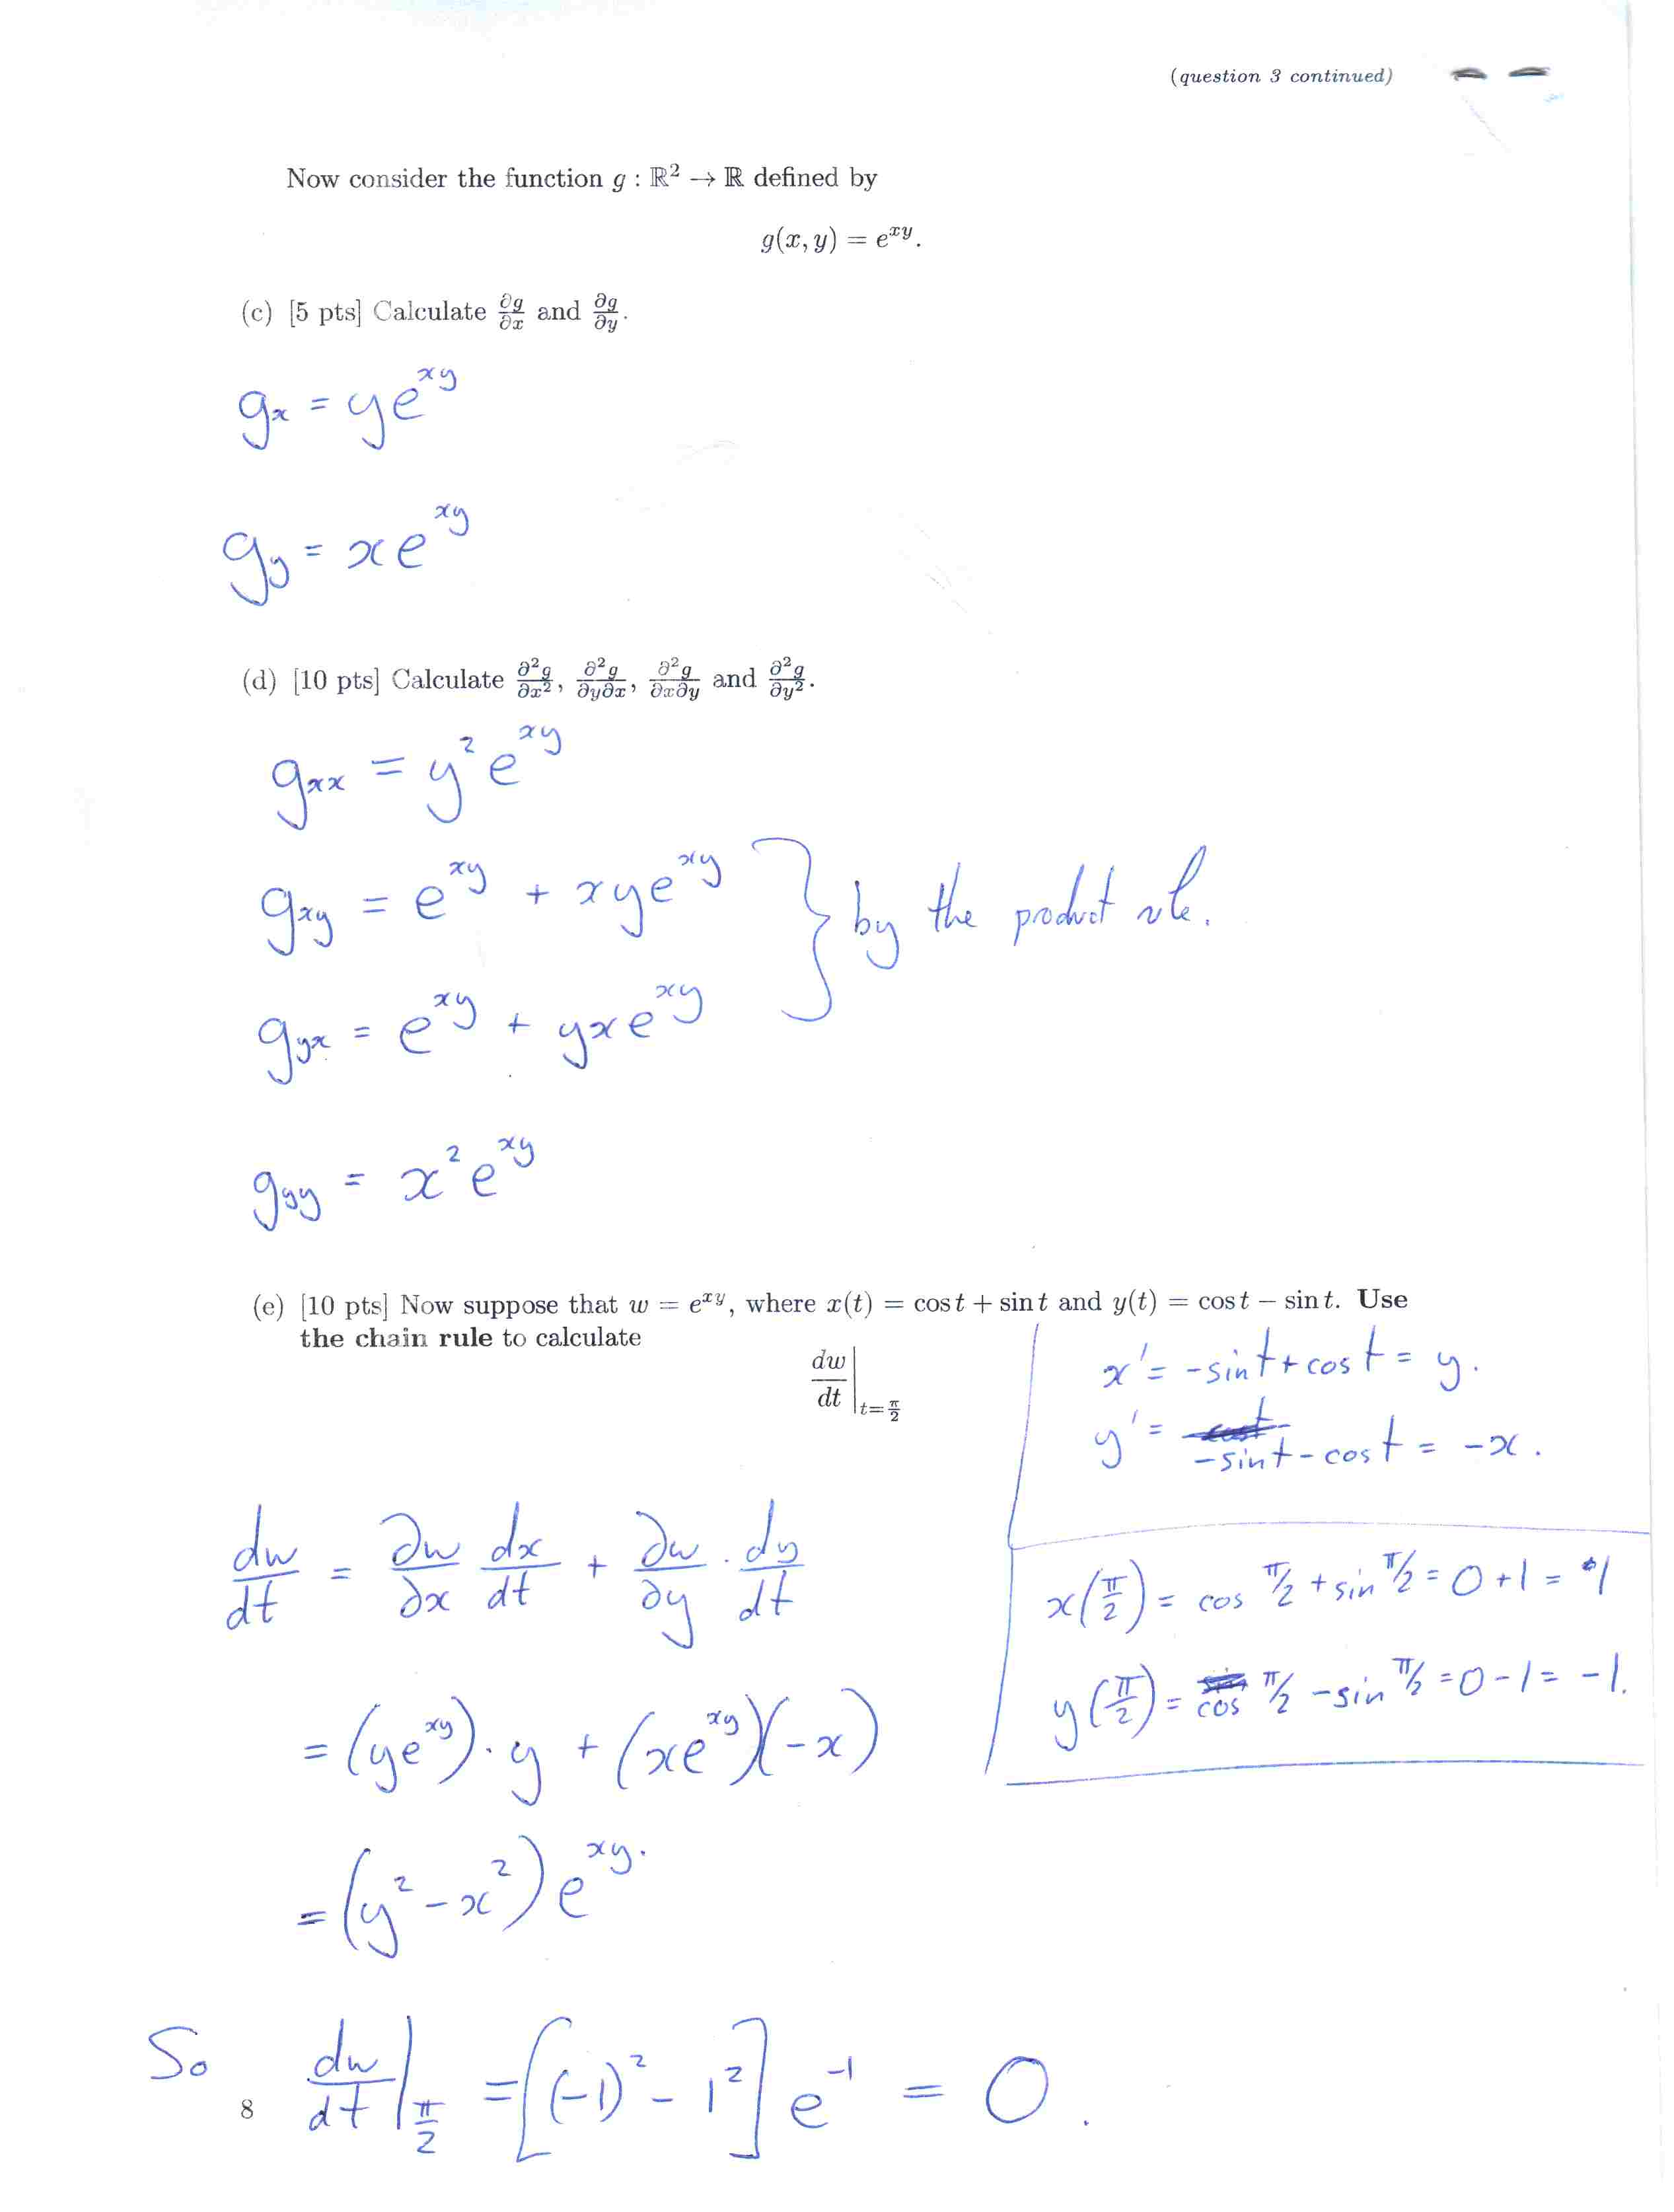 (question 3 continued)
Now consider the function g : ℝ² → ℝ defined by
g(x, y) = e^{xy}.
(c) [5 pts] Calculate ∂g/∂x and ∂g/∂y.
g_x = ye^{xy}
g_y = xe^{xy}
(d) [10 pts] Calculate ∂²g/∂x², ∂²g/∂y∂x, ∂²g/∂x∂y and ∂²g/∂y².
g_{xx} = y²e^{xy}
g_{xy} = e^{xy} + xye^{xy}
by the product rule.
g_{yx} = e^{xy} + yxe^{xy}
g_{yy} = x²e^{xy}
(e) [10 pts] Now suppose that w = e^{xy}, where x(t) = cos t + sin t and y(t) = cos t − sin t. Use
the chain rule to calculate
dw/dt |_{t=π/2}
x' = -sin t + cos t = y.
y' = -sin t - cos t = -x.
x(π/2) = cos π/2 + sin π/2 = 0 + 1 = 1
y(π/2) = cos π/2 - sin π/2 = 0 - 1 = -1.
dw/dt = ∂w/∂x dx/dt + ∂w/∂y · dy/dt
= (ye^{xy}) · y + (xe^{xy})(-x)
= (y² - x²) e^{xy}.
So dw/dt |_{π/2} = [(-1)² - 1²] e^{-1} = 0.
8